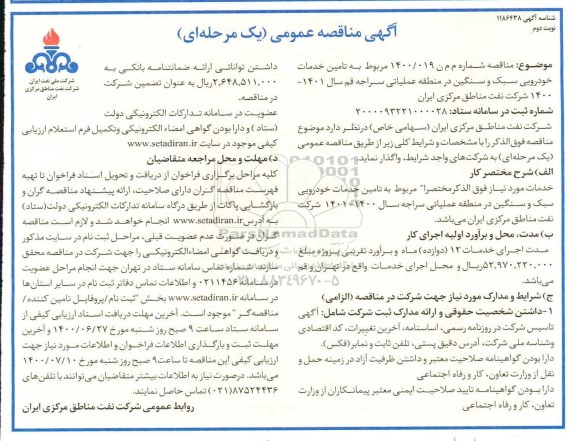 شناسه آگهی ۱۱۸۶۴۳۸
نوبت دوم
آگهی مناقصه عمومی (یک مرحله‌ای)
شرکت ملی نفت ایران
شرکت نفت مناطق مرکزی
ایران
موضوع: مناقصه شماره م م ن ۱۴۰۰/۰۱۹ مربوط به تامین خدمات
خودرویی سبک و سنگین در منطقه عملیاتی سراجه قم سال ۱۴۰۱-
۱۴۰۰ شرکت نفت مناطق مرکزی ایران
شماره ثبت در سامانه ستاد: ۲۰۰۰۰۹۳۲۲۱۰۰۰۰۲۸
شرکت نفت مناطق مرکزی ایران (سهامی خاص) درنظر دارد موضوع
مناقصه فوق الذکر را با مشخصات و شرایط کلی زیر از طریق مناقصه عمومی
(یک مرحله‌ای) به شرکت‌های واجد شرایط، واگذار نماید.
الف) شرح مختصر کار
خدمات مورد نیاز فوق الذکر مختصرا" مربوط به تامین خدمات خودرویی
سبک و سنگین در منطقه عملیاتی سراجه سال ۱۴۰۰-۱۴۰۱ شرکت
نفت مناطق مرکزی ایران می‌باشد.
ب) مدت، محل و برآورد اولیه اجرای کار
مدت اجرای خدمات ۱۲ (دوازده) ماه و برآورد تقریبی پروژه مبلغ
۵۲,۹۷۰,۲۲۰,۰۰۰ریال و محل اجرای خدمات واقع در تهران و قم
می‌باشد.
ج) شرایط و مدارک مورد نیاز جهت شرکت در مناقصه (الزامی)
۱-داشتن شخصیت حقوقی و ارائه مدارک ثبت شرکت شامل: آگهی
تاسیس شرکت در روزنامه رسمی، اساسنامه، آخرین تغییرات، کد اقتصادی
وشناسه ملی شرکت، آدرس دقیق پستی، تلفن ثابت و نمابر(فکس).
دارا بودن گواهینامه صلاحیت معتبر و داشتن ظرفیت آزاد در زمینه حمل و
نقل از وزارت تعاون، کار و رفاه اجتماعی
دارا بودن گواهینامه تایید صلاحیت ایمنی معتبر پیمانکاران از وزارت
تعاون، کار و رفاه اجتماعی
داشتن توانائی ارائه ضمانتنامه بانکی به
مبلغ ۲,۶۴۸,۵۱۱,۰۰۰ریال به عنوان تضمین شرکت
در مناقصه.
عضویت در سامانه تدارکات الکترونیکی دولت
(ستاد) و دارا بودن گواهی امضاء الکترونیکی وتکمیل فرم استعلام ارزیابی
کیفی موجود در سایت www.setadiran.ir
د) مهلت و محل مراجعه متقاضیان
کلیه مراحل برگزاری فراخوان از دریافت و تحویل اسناد فراخوان تا تهیه
فهرست مناقصه گران دارای صلاحیت، ارائه پیشنهاد مناقصه گران و
بازگشایی پاکات از طریق درگاه سامانه تدارکات الکترونیکی دولت(ستاد)
به آدرس www.setadiran.ir انجام خواهد شد و لازم است مناقصه
گران در صورت عدم عضویت قبلی، مراحل ثبت نام در سایت مذکور
و دریافت گواهی امضاء الکترونیکی را جهت شرکت در مناقصه محقق
سازند. شماره تماس سامانه ستاد در تهران جهت انجام مراحل عضویت
در سامانه ۰۲۱۱۴۵۶ و اطلاعات تماس دفاتر ثبت نام در سایر استان‌ها
در سامانه www.setadiran.ir بخش "ثبت نام/پروفایل تامین کننده/
مناقصه گر" موجود است. آخرین مهلت دریافت اسناد ارزیابی کیفی از
سامانه ستاد ساعت ۹ صبح روز شنبه مورخ ۱۴۰۰/۰۶/۲۷ و آخرین
مهلت ثبت و بارگذاری اطلاعات فراخوان و اطلاعات مورد نیاز جهت
ارزیابی کیفی این مناقصه تا ساعت۹ صبح روز شنبه مورخ ۱۴۰۰/۰۷/۱۰
می‌باشد. درصورت نیاز به اطلاعات بیشتر متقاضیان می‌توانند با تلفن‌های
۸۷۵۲۴۴۳۶(۰۲۱) تماس حاصل نمایند.
روابط عمومی شرکت نفت مناطق مرکزی ایران
ParsNamadData
۸۸۳۴۹۶۷۰-۵